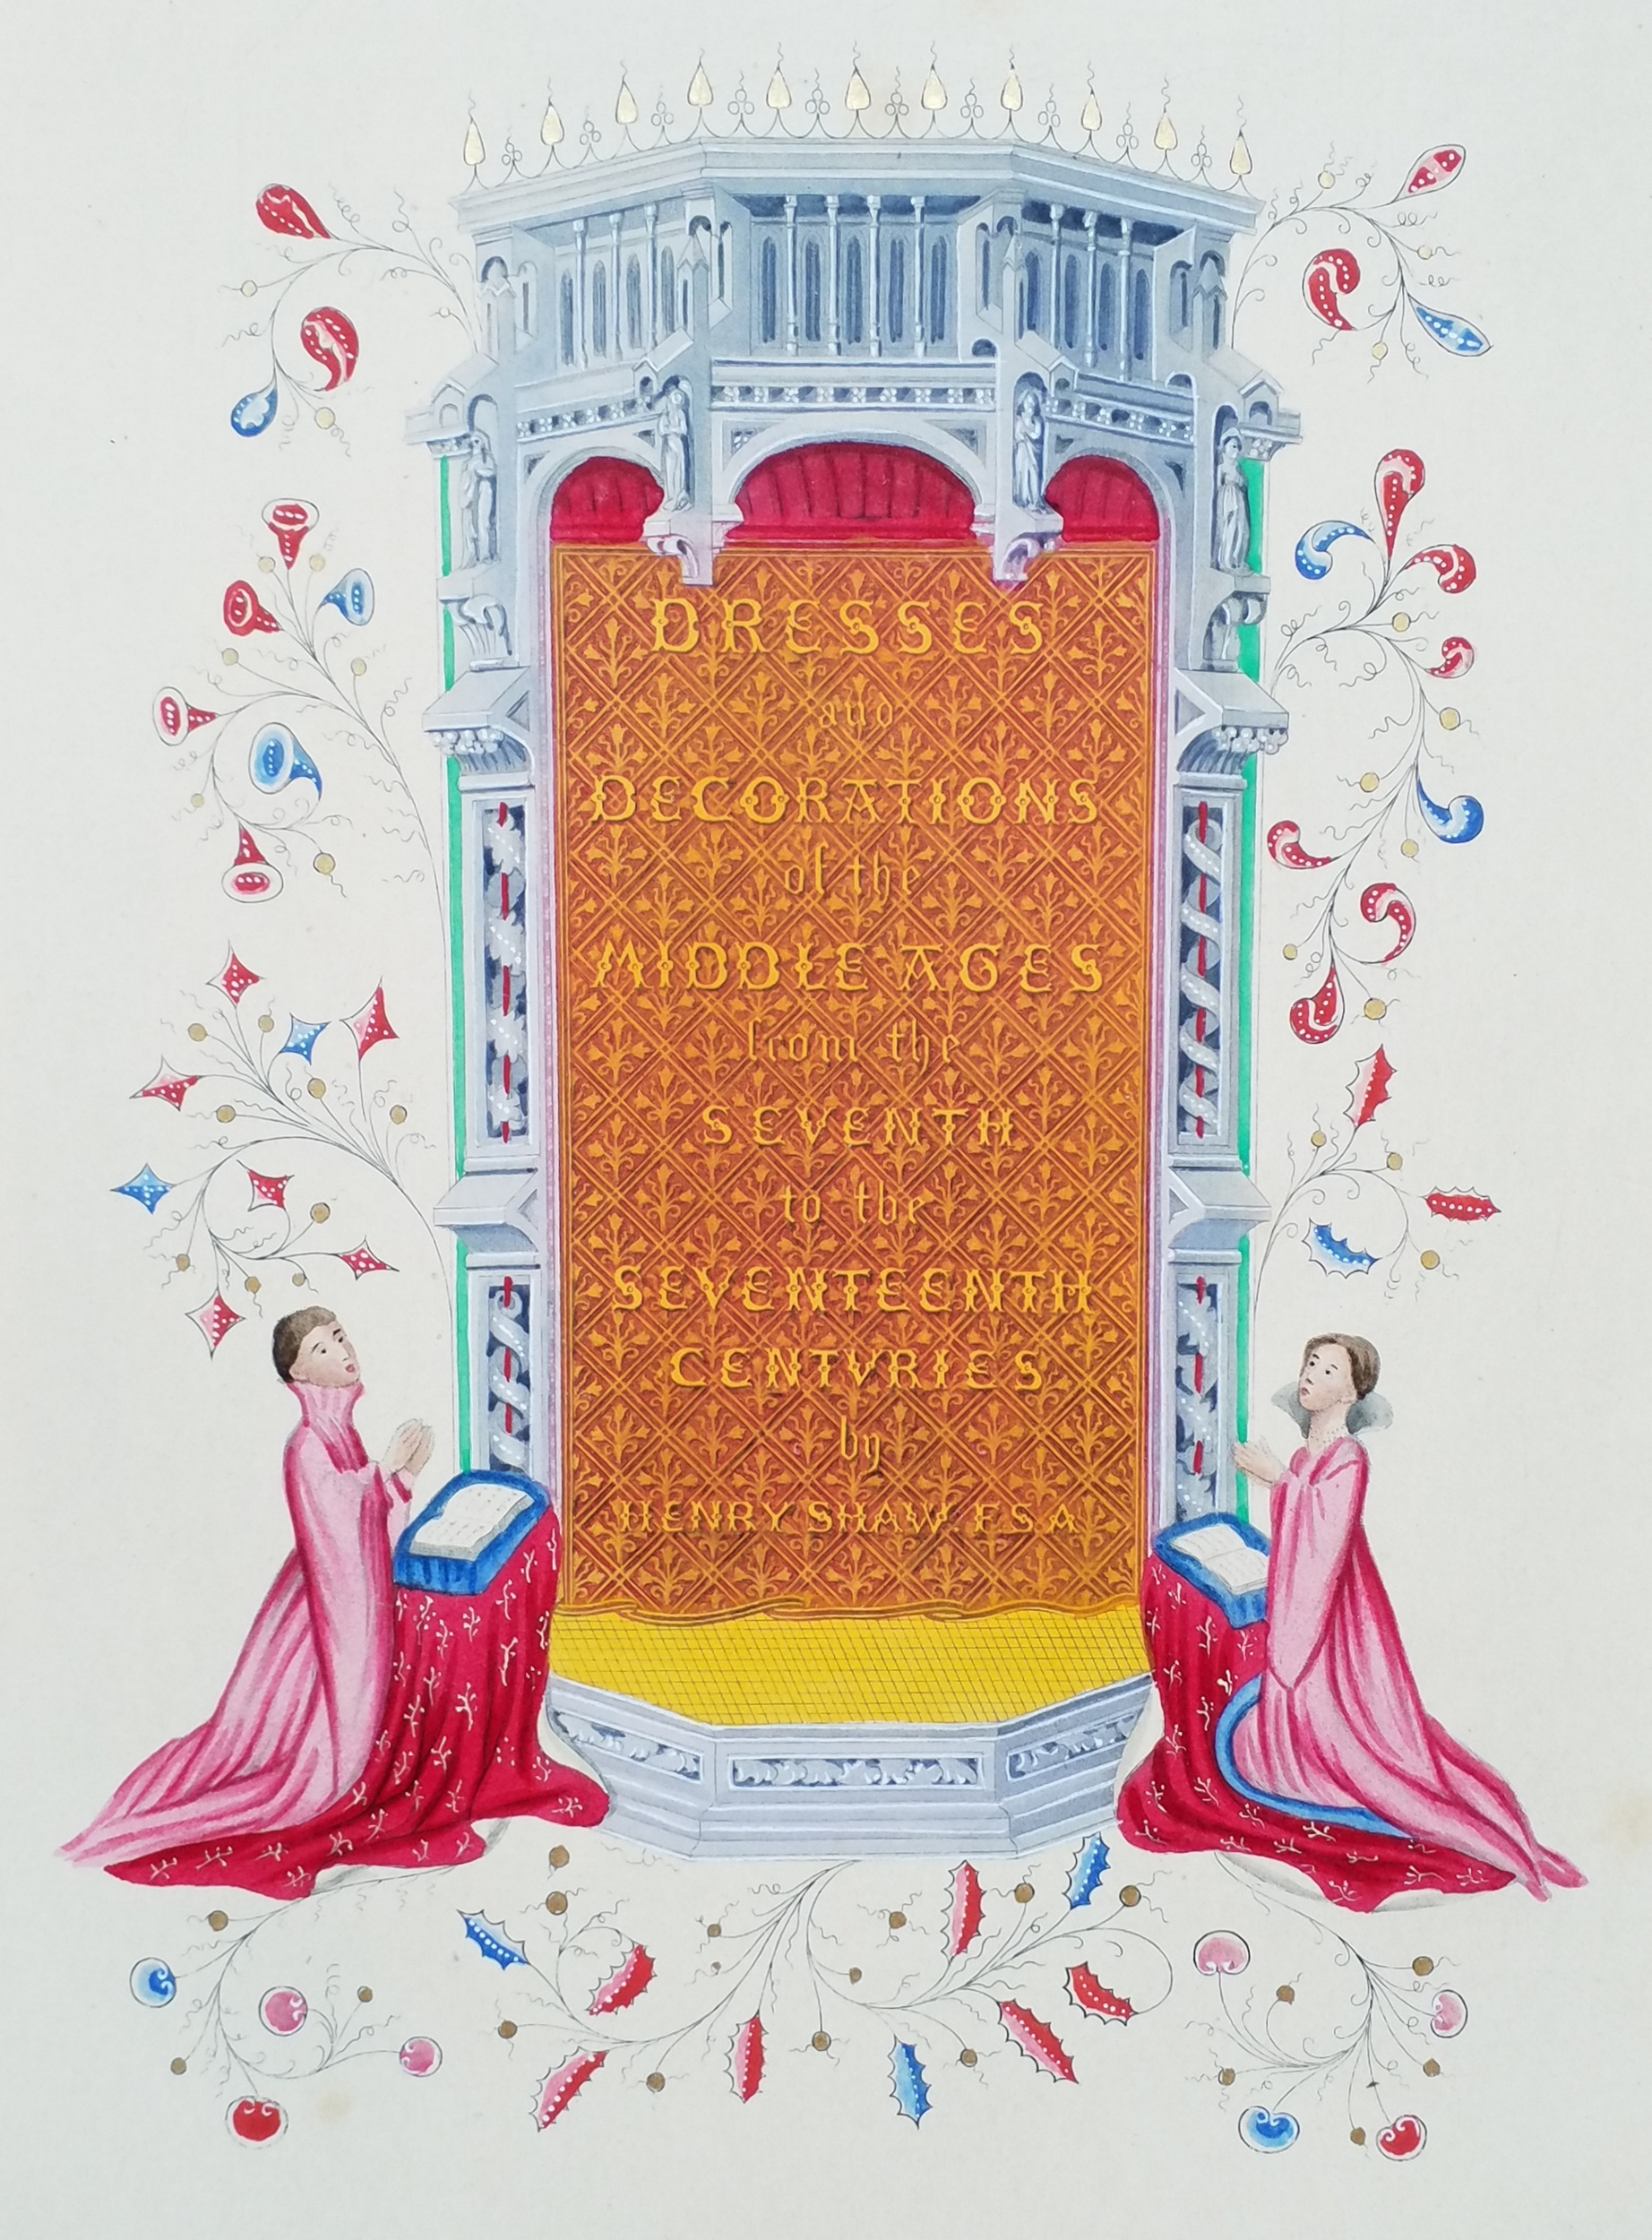 DRESSES
and
DECORATIONS
of the
MIDDLE AGES
from the
SEVENTH
to the
SEVENTEENTH
CENTVRIES
by
HENRY SHAW F.S.A